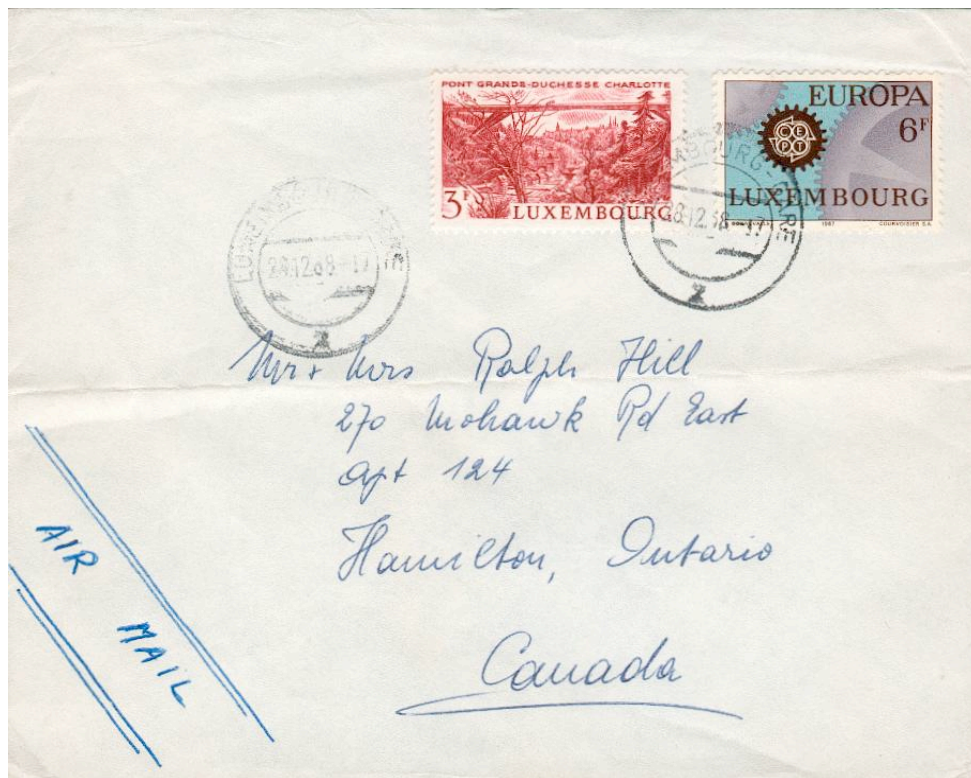 PONT GRANDE-DUCHESSE CHARLOTTE
3F LUXEMBOURG
EUROPA
6F
CEPT
LUXEMBOURG
1967 COURVOISIER S.A.
28.12.68-17
LUXEMBOURG-GARE
28.12.68-17
z
z
Mr + Mrs Ralph Hill
270 Mohawk Rd East
Apt 124
Hamilton, Ontario
Canada
AIR
MAIL